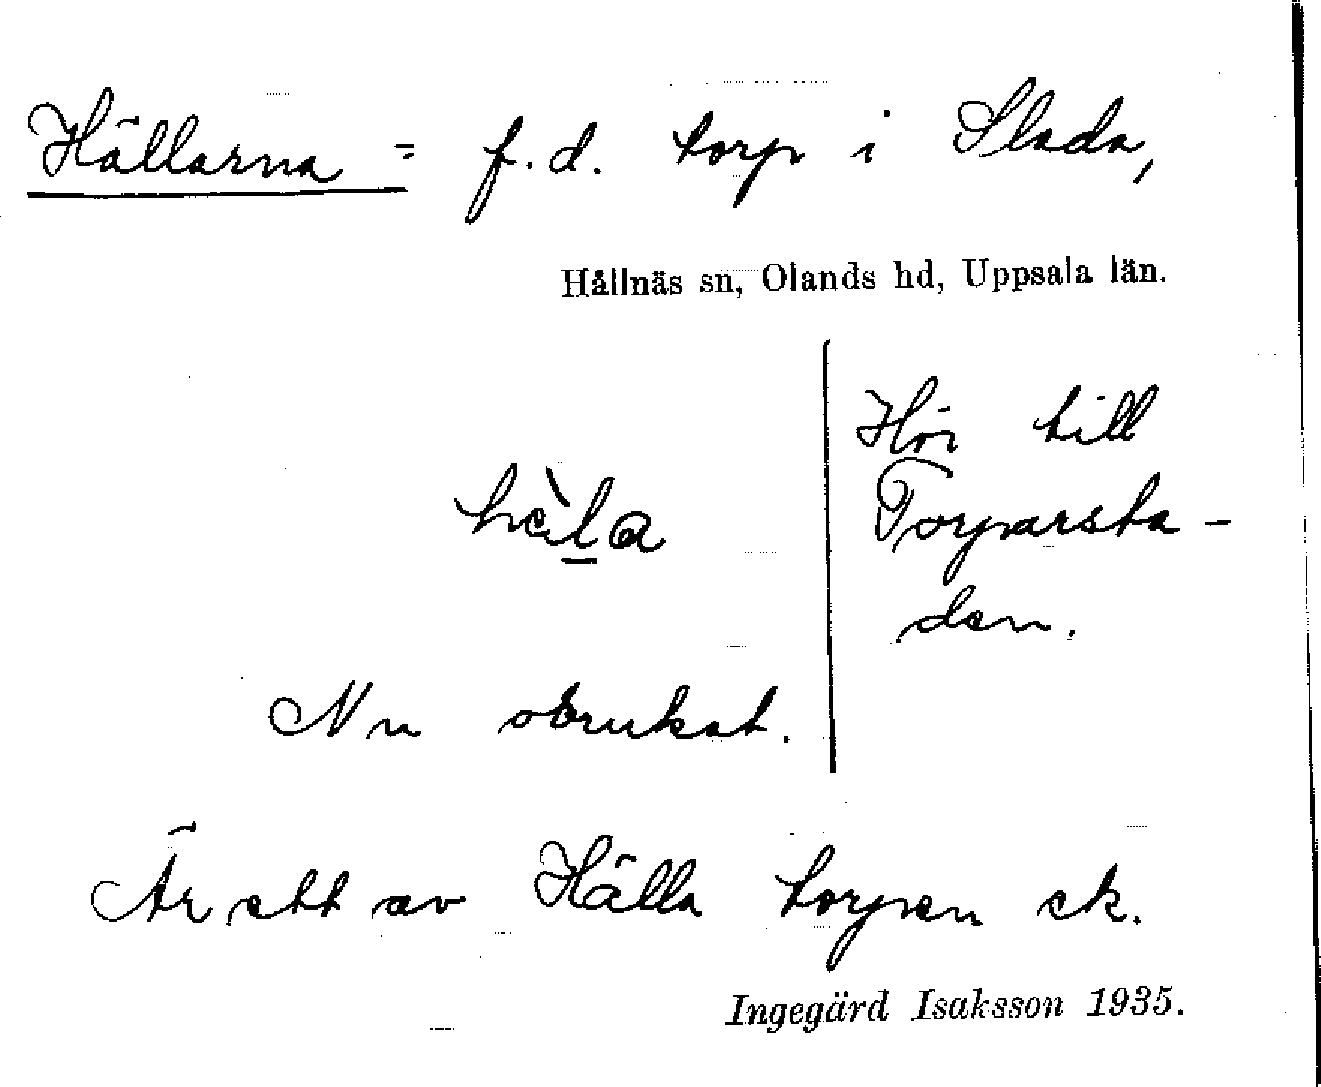 Hällarna = f.d. torp i Slada,
Hållnäs sn, Olands hd, Uppsala län.
hὲla
Hör till
Torparsta-
den.
Nu obrukat.
Är ett av Hälla torpen ek.
Ingegärd Isaksson 1935.